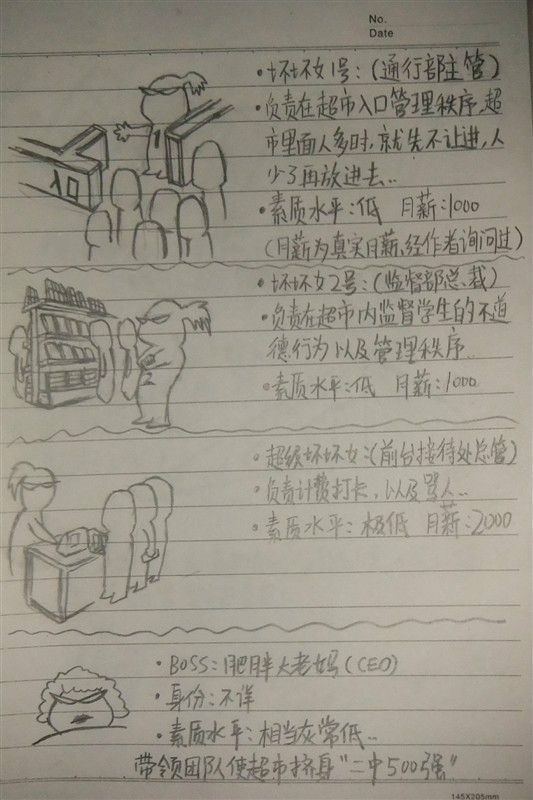 No.
Date
·坏坏女1号:(通行部主管)
·负责在超市入口管理秩序,超
市里面人多时,就先不让进,人
少了再放进去..
·素质水平:低 月薪:1000
(月薪为真实月薪,经作者询问过)
·坏坏女2号:(监督部总裁)
·负责在超市内监督学生的不道
德行为以及管理秩序..
·素质水平:低 月薪:1000
·超级坏坏女:(前台接待处总管)
·负责计费打卡,以及骂人..
·素质水平:极低 月薪:2000
·BOSS:肥胖大老妈(CEO)
·身份:不详
·素质水平:相当灰常低..
带领团队使超市挤身"二中500强"
145X205mm